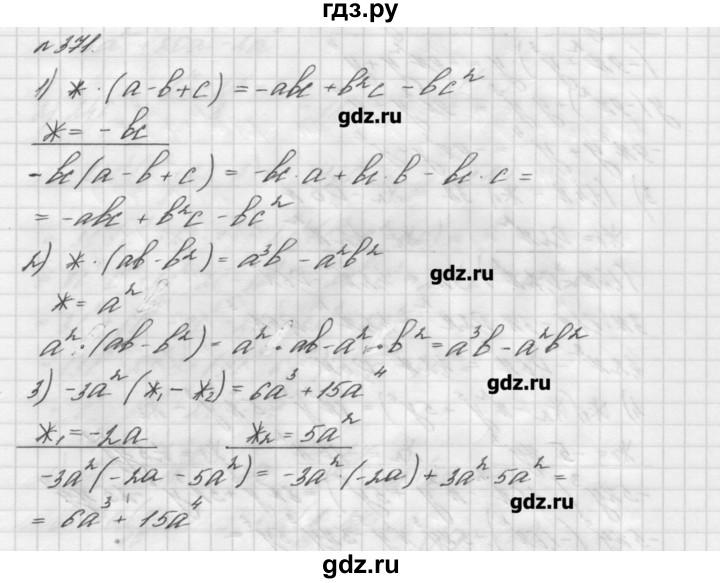 гдз.ру
№371.
1) * · (a - b + c) = -abc + b²c - bc²
gdz.ru
* = - bc
-bc(a - b + c) = -bc · a + bc · b - bc · c =
= -abc + b²c - bc²
2) * · (ab - b²) = a³b - a²b²
gdz.ru
* = a²
a² · (ab - b²) = a² · ab - a² · b² = a³b - a²b²
3) -3a²(*₁ - *₂) = 6a³ + 15a⁴
gdz.ru
*₁ = -2a *₂ = 5a²
-3a²(-2a - 5a²) = -3a²(-2a) + 3a² 5a² =
gdz.ru
= 6a³ + 15a⁴
gdz.ru